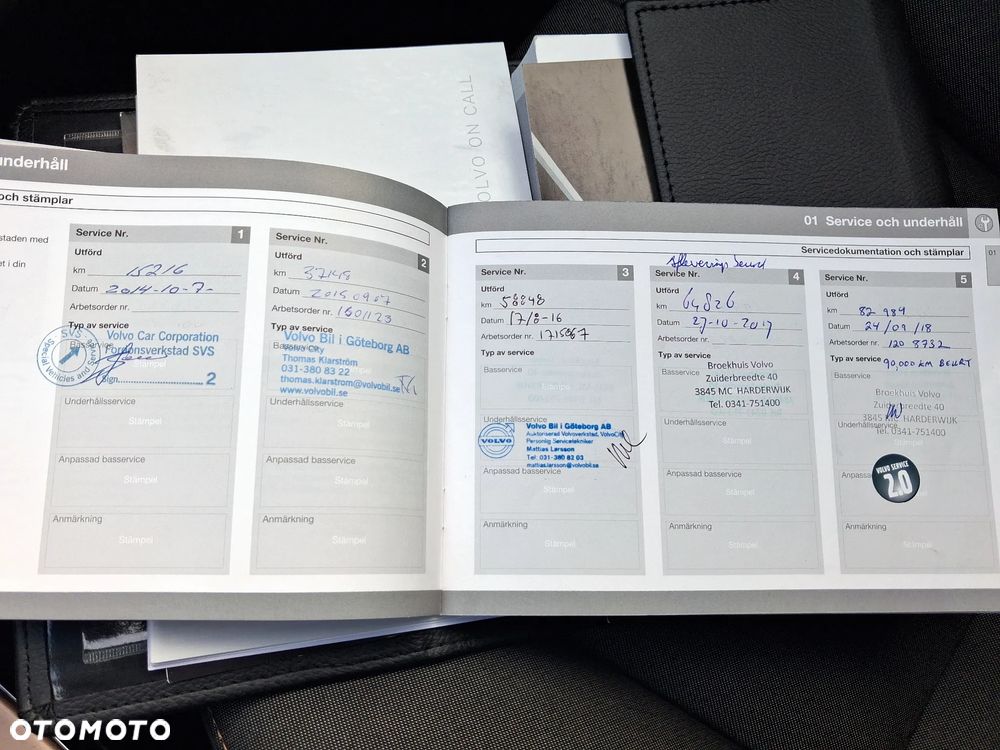 VOLVO ON CALL
underhåll
och stämplar
staden med
et i din
Service Nr. 1
Utförd
km 15216
Datum 2014-10-7-
Arbetsorder nr.
Typ av service
Basservice
SVS
Special Vehicles and Service
Volvo Car Corporation
Fordonsverkstad SVS
Sign. 2
Underhållsservice
Stämpel
Anpassad basservice
Stämpel
Anmärkning
Stämpel
Service Nr. 2
Utförd
km 37148
Datum 20150907
Arbetsorder nr. 1501123
Typ av service
Volvo Bil i Göteborg AB
Volvo City
Thomas Klarström
031-380 83 22
thomas.klarstrom@volvobil.se
www.volvobil.se
Underhållsservice
Stämpel
Anpassad basservice
Stämpel
Anmärkning
Stämpel
01 Service och underhåll
Servicedokumentation och stämplar
01
Service Nr. 3
Utförd
km 58848
Datum 17/8-16
Arbetsorder nr. 1715867
Typ av service
Basservice
Stämpel
Underhållsservice
VOLVO
Volvo Bil i Göteborg AB
Auktoriserad Volvoverkstad, VolvoCity
Personlig Servicetekniker
Mattias Larsson
Tel: 031-380 82 03
mattias.larsson@volvobil.se
Anpassad basservice
Stämpel
Anmärkning
Stämpel
afleverings beurt
Service Nr. 4
Utförd
km 64826
Datum 27-10-2017
Arbetsorder nr.
Typ av service
Basservice
Broekhuis Volvo
Zuiderbreedte 40
3845 MC HARDERWIJK
Tel. 0341-751400
Underhållsservice
Stämpel
Anpassad basservice
Stämpel
Anmärkning
Stämpel
Service Nr. 5
Utförd
km 82984
Datum 24/09/18
Arbetsorder nr. 120 8732
Typ av service 90,000 KM BEURT
Basservice
Broekhuis Volvo
Zuiderbreedte 40
3845 MC HARDERWIJK
Tel. 0341-751400
Underhållsservice
Anpassad basservice
VOLVO SERVICE
2.0
Anmärkning
Stämpel
OTOMOTO